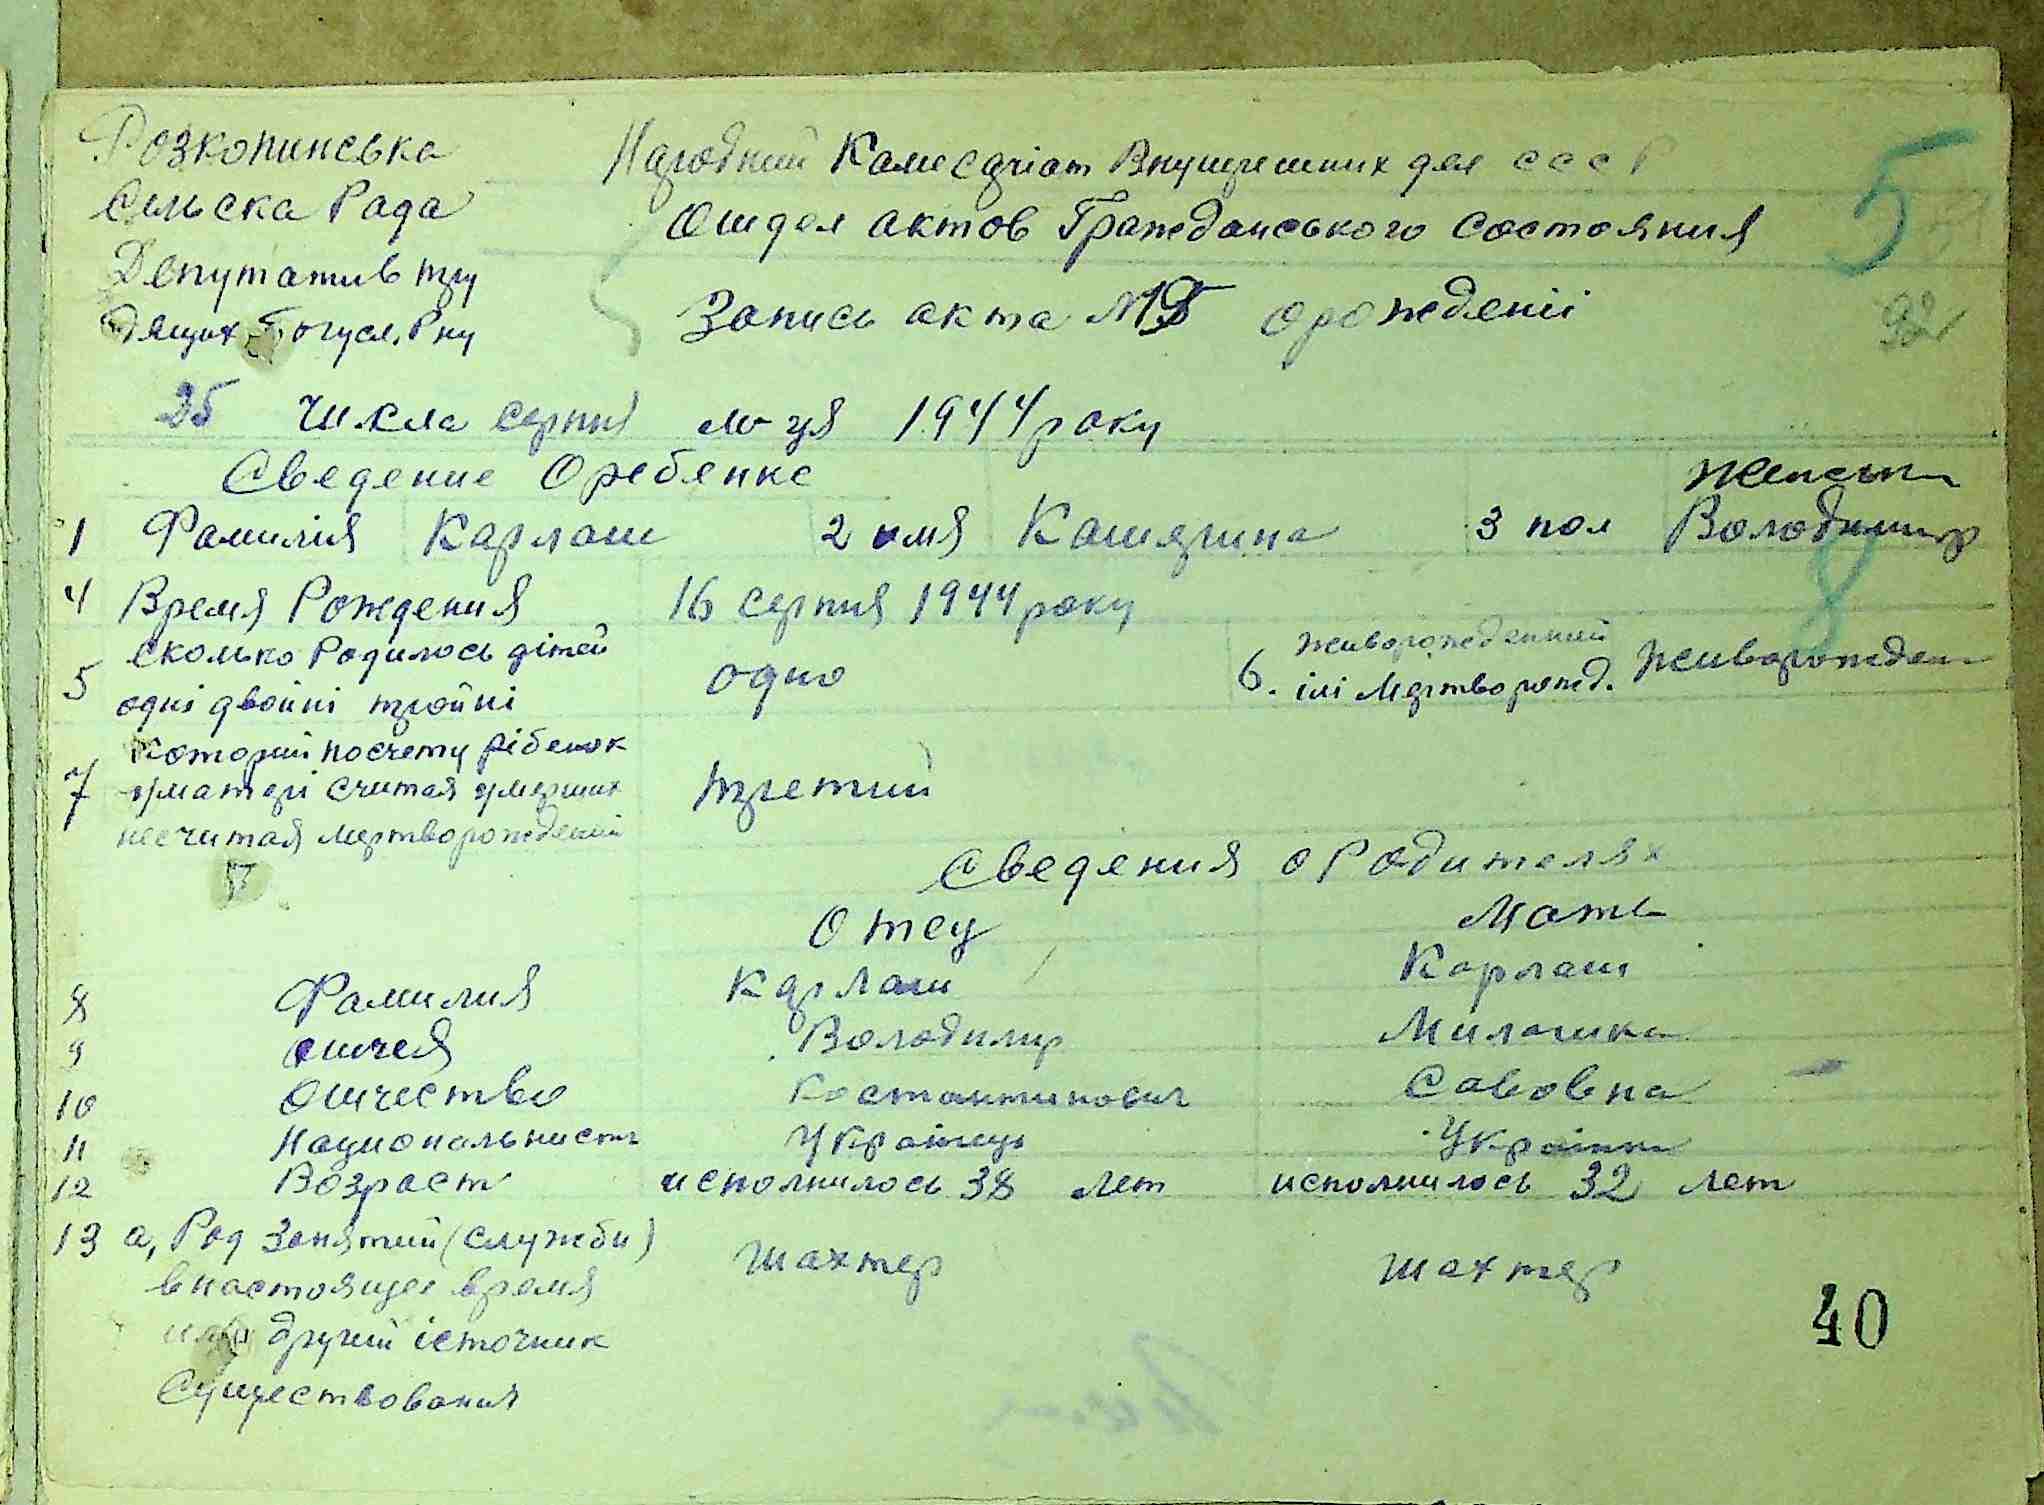 Розкопинська
Сильска Рада
Депутатив тру
дящих Богусл. Рну
Народний Камесаріат Внутрешних дел СССР
Отдел актов Гражданського состояния
Запись акта № о рожденії
5
92
25 числа серпня м-ця 1944 року
Сведение О ребенке
1 Фамилія Карлаш 2 имя Катярина 3 пол Женськи
Володимир
8
4 Время Рождения 16 серпня 1944 року
5 Сколько Родилось дітей
одні двойні тройні
одно
6. живорожденний
ілі Мертворожд.
Живорожден
7 Которий по счету рібенок
у матері Считая умерших
не считая мертворождений
третий
Сведения о Родителях
Отец Мать
8 Фамилия Карлаш Карлаш
9 имея Володимир Милашка
10 Отчество Костантинович Савовна
11 Национальнисть Українець Українка
12 Возраст исполнилось 38 лет исполнилось 32 лет
13 а, Род Занятий (службы)
в настоящее время
или другий істочник
Существования
шахтер шахтер
40